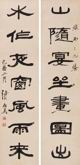 山隨宴坐畫圖出
水作夜窗風雨來